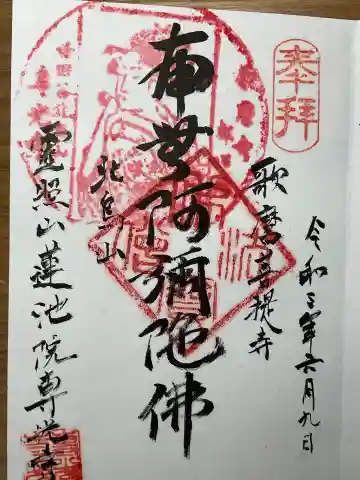 奉拝
令和三年六月九日
歌麿菩提寺
南無阿彌陀佛
北烏山
靈照山蓮池院專光寺